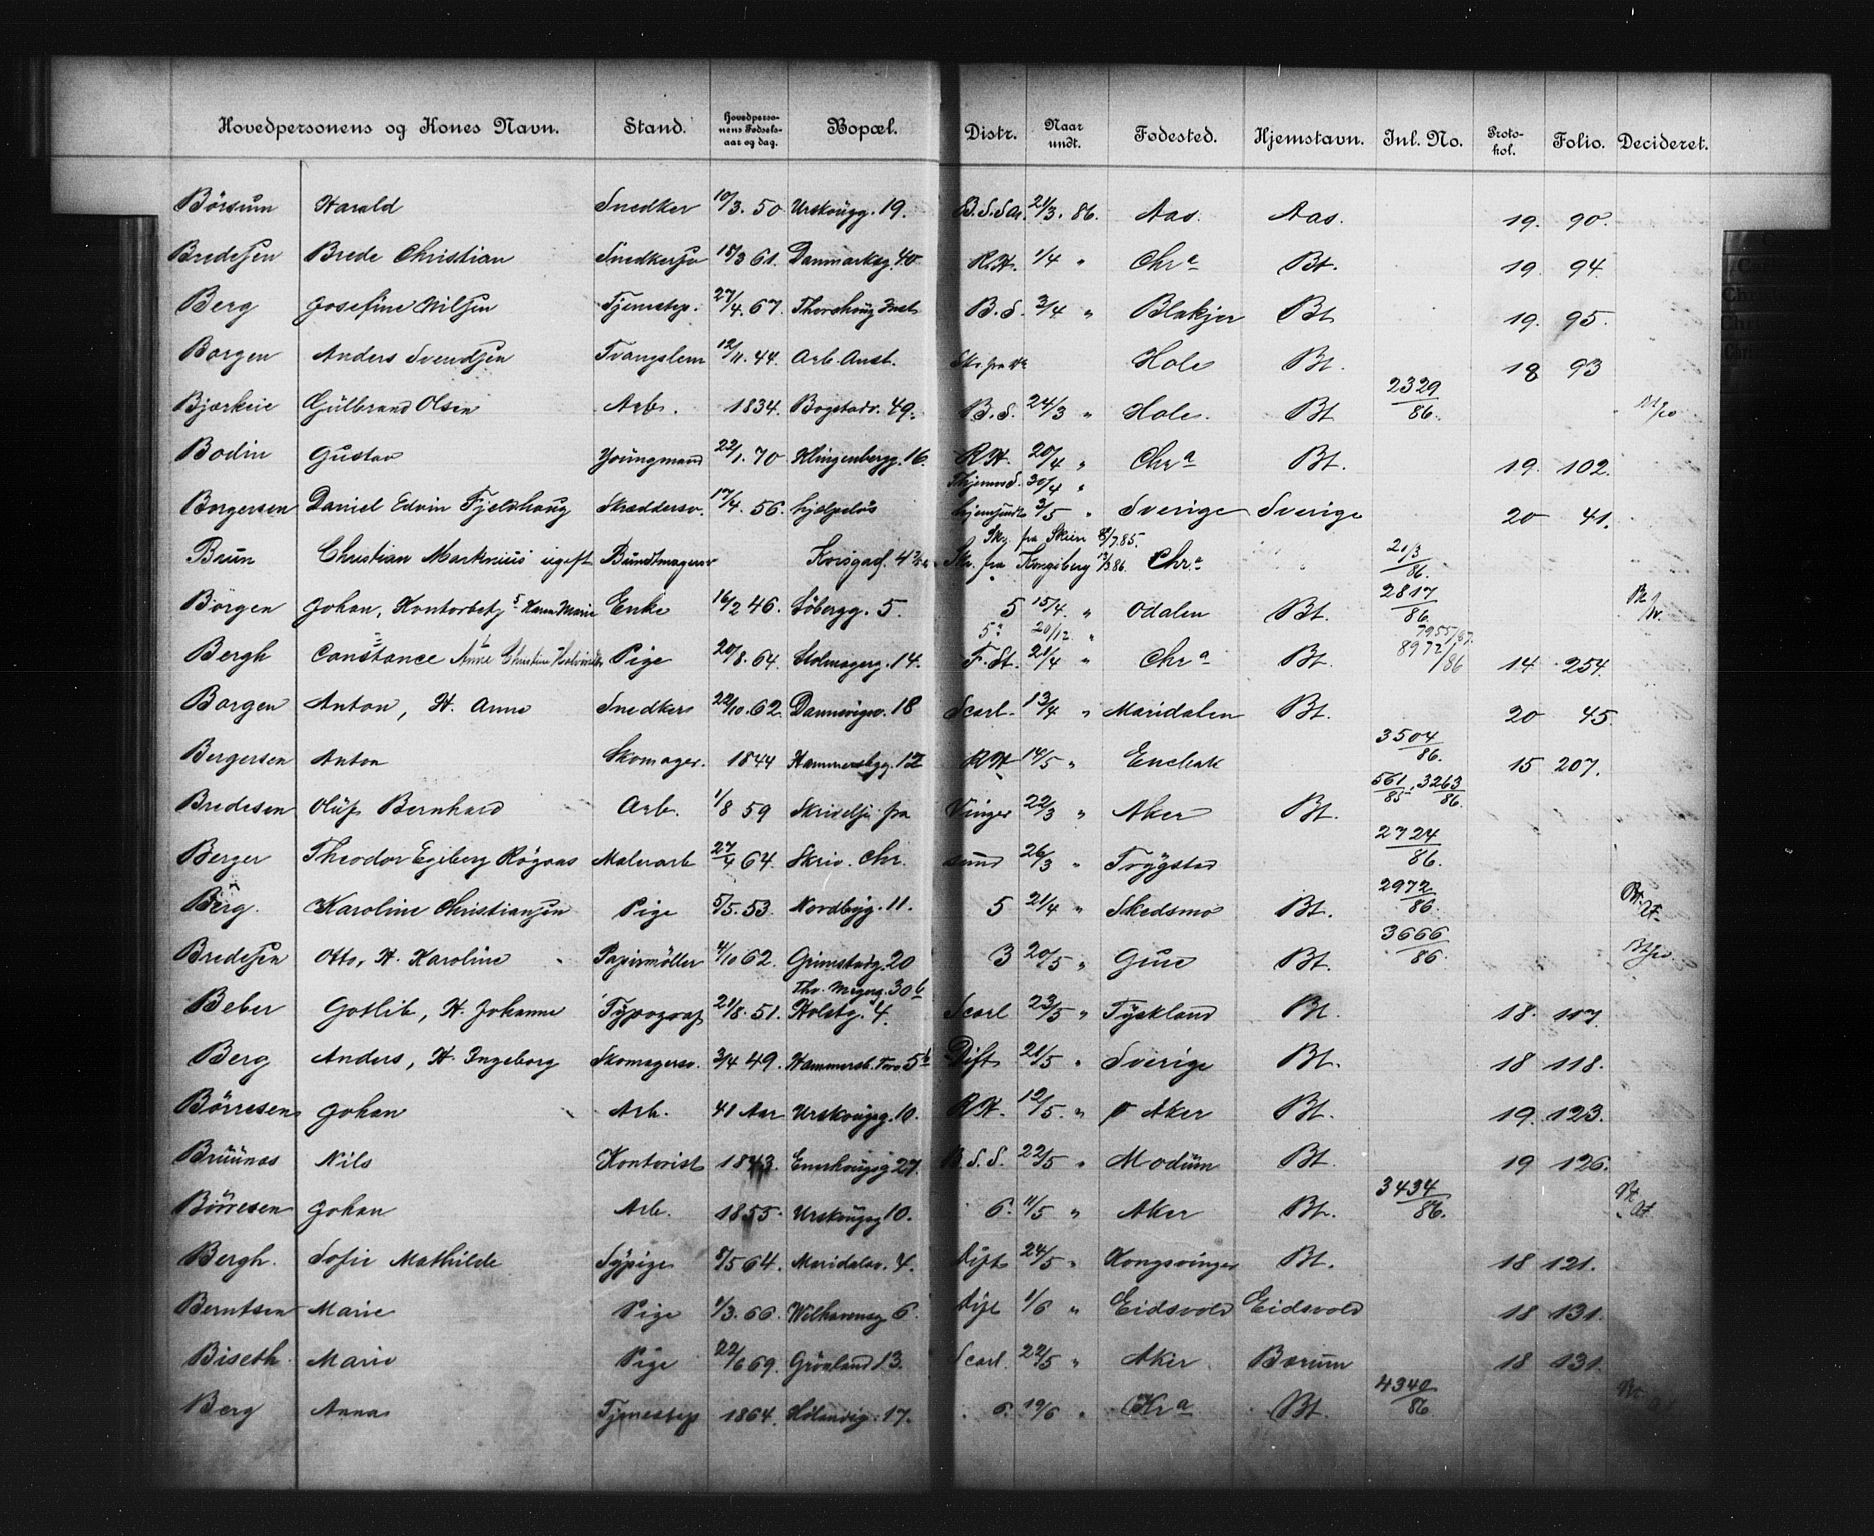 Hovedpersonens og Kones Navn. Stand. Hovedpersonens Fødselsaar og dag. Bopæl. Distr. Naar undt. Fødested. Hjemstavn. Inl. No. Protokol. Folio. Decideret.
Børsum Harald Snedker 10/3. 50 Urskougg. 19. B.S.Sa. 21/3. 86. Aas. Aas. 19. 90.
Bredesen Brede Christian Snedkersv 18/3 61. Danmarksg. 40 R.H. 1/4 " Chr a Bt. 19. 94.
Berg Josefine Nilsen Tjenestep. 27/4. 67. Thorshoug Inst B.S. 3/4 " Blakjer Bt 19. 95.
Borgen Anders Svendsen Tvangslem 12/11. 44. Arb. Anst. Hole Bt. 18 93
Bjærkeie Gulbrand Olsen Arb. 1834. Bogstadv. 49. B.S. 24/3 " Hole. Bt 2329/86.
Bodin Gustav Youngmand 22/1. 70 Klingenbergg. 16. R.H. 20/4 " Chr a Bt. 19. 102.
Thjemms S. 30/4 "
Borgersen Daniel Edvin Fjeldhoug Skræddersv. 17/4. 56. hjælpeløs hjemsendt 3/5 " Sverige Sverige 20 41.
Skr. fra Skien 8/7.85.
Brun Christian Martinius ugift Bundtmagersv Korsgad. 4 Skr. fra Kongsberg 13/3 86. Chr a " 21/3/86.
Børgen Johan, Kontorbetj s Karen Marie Enke 16/2 46. Søbergg. 5. 5 15/4. " Odalen Bt. 2817/86.
5 20/12 " 7955/87.
Bergh Constance Anne Christine Pige 20/8. 64. Stolmagerg. 14. F. St. 21/4 " Chr a Bt. 8972/86 14 254.
Borgen Anton, H. Anne Snedkers 22/10. 62. Dannevigsv. 18 Scarl. 13/4 " Maridalen Bt. 20 45.
Bergersen Anton Skomager. 1844 Hammersbgg. 12 R.H 14/5 " Enebak 3504/86. 15 207.
Bredesen Oluf Bernhard Arb. 1/8 59 Skrivelse fra Vinger 22/3 " Aker Bt. 561/85. 3263/86.
Berger Theodor Egiberg Røgaas Malerarb 27/4 64. Skriv. Chr. sund 26/3 " Trygstad 2724/86.
Berg. Karoline Christiansen Pige 5/5. 53. Nordbyg. 11. 5 21/4 " Skedsmo Bt. 2972/86.
Bredesen Otto, H. Karoline Papirmøller 4/10 62. Grimstadg. 20 3 20/5 " Grue Bt. 3666/86.
Thv. Meyersg. 30 b
Beber Gotlib, H. Johanne Typograf 21/8. 51. Holstg. 4. Scarl 23/5 " Tyskland Bt. 18. 117.
Berg Anders, H. Ingeborg Skomagersv. 3/4 49. Hammersb. Torv 5 b Dift 21/5 " Sverige Bt. 18 118.
Børresen Johan Arb. 41 Aar Urskougsg. 10. R.H. 12/5. " Aker Bt. 19. 123.
Bruunaas Nils Kontorist 1843. Enerhougsg 27 B.S.S. 22/5 " Modum Bt. 19 126.
Børresen Johan Arb. 1855. Urskougsg 10. 6. 11/5 " Aker Bt. 3434/86.
Bergh. Sofie Mathilde Sypige 8/5 64. Maridalsv. 4. Dift 24/5 " Kongsvinger Bt. 18 121.
Berntsen Marie Pige 1/3. 66. 6. Dift 1/6 " Eidsvold Eidsvold 18 131.
Biseth Marie Pige 22/6 69. Grønland 13. Scarl. 22/5 " Aker Bærum 18 131.
Berg Anna Tjenestep 1864. 17. 6. 19/6 " Kr a Bt. 4340/86